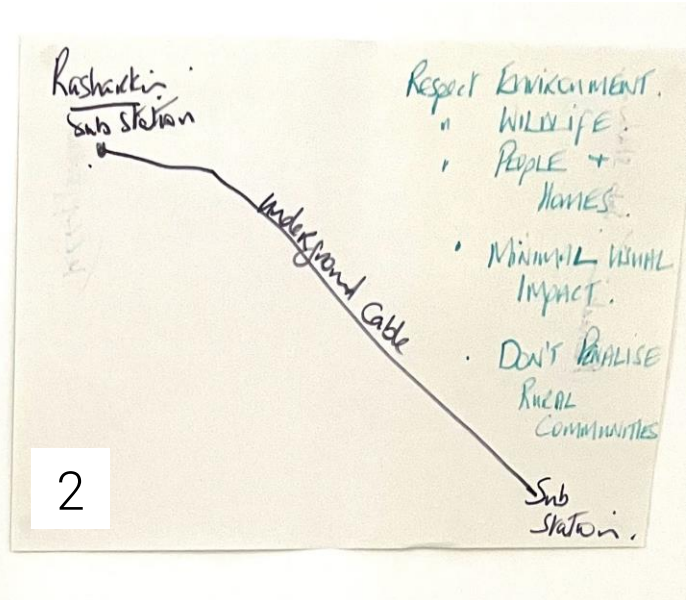 Rasharkin
Sub Station
Underground Cable
Sub
Station.
Respect ENVIRONMENT.
" WILDLIFE.
" PEOPLE +
HOMES.
• MINIMAL VISUAL
IMPACT.
• DON'T PENALISE
RURAL
COMMUNITIES
2